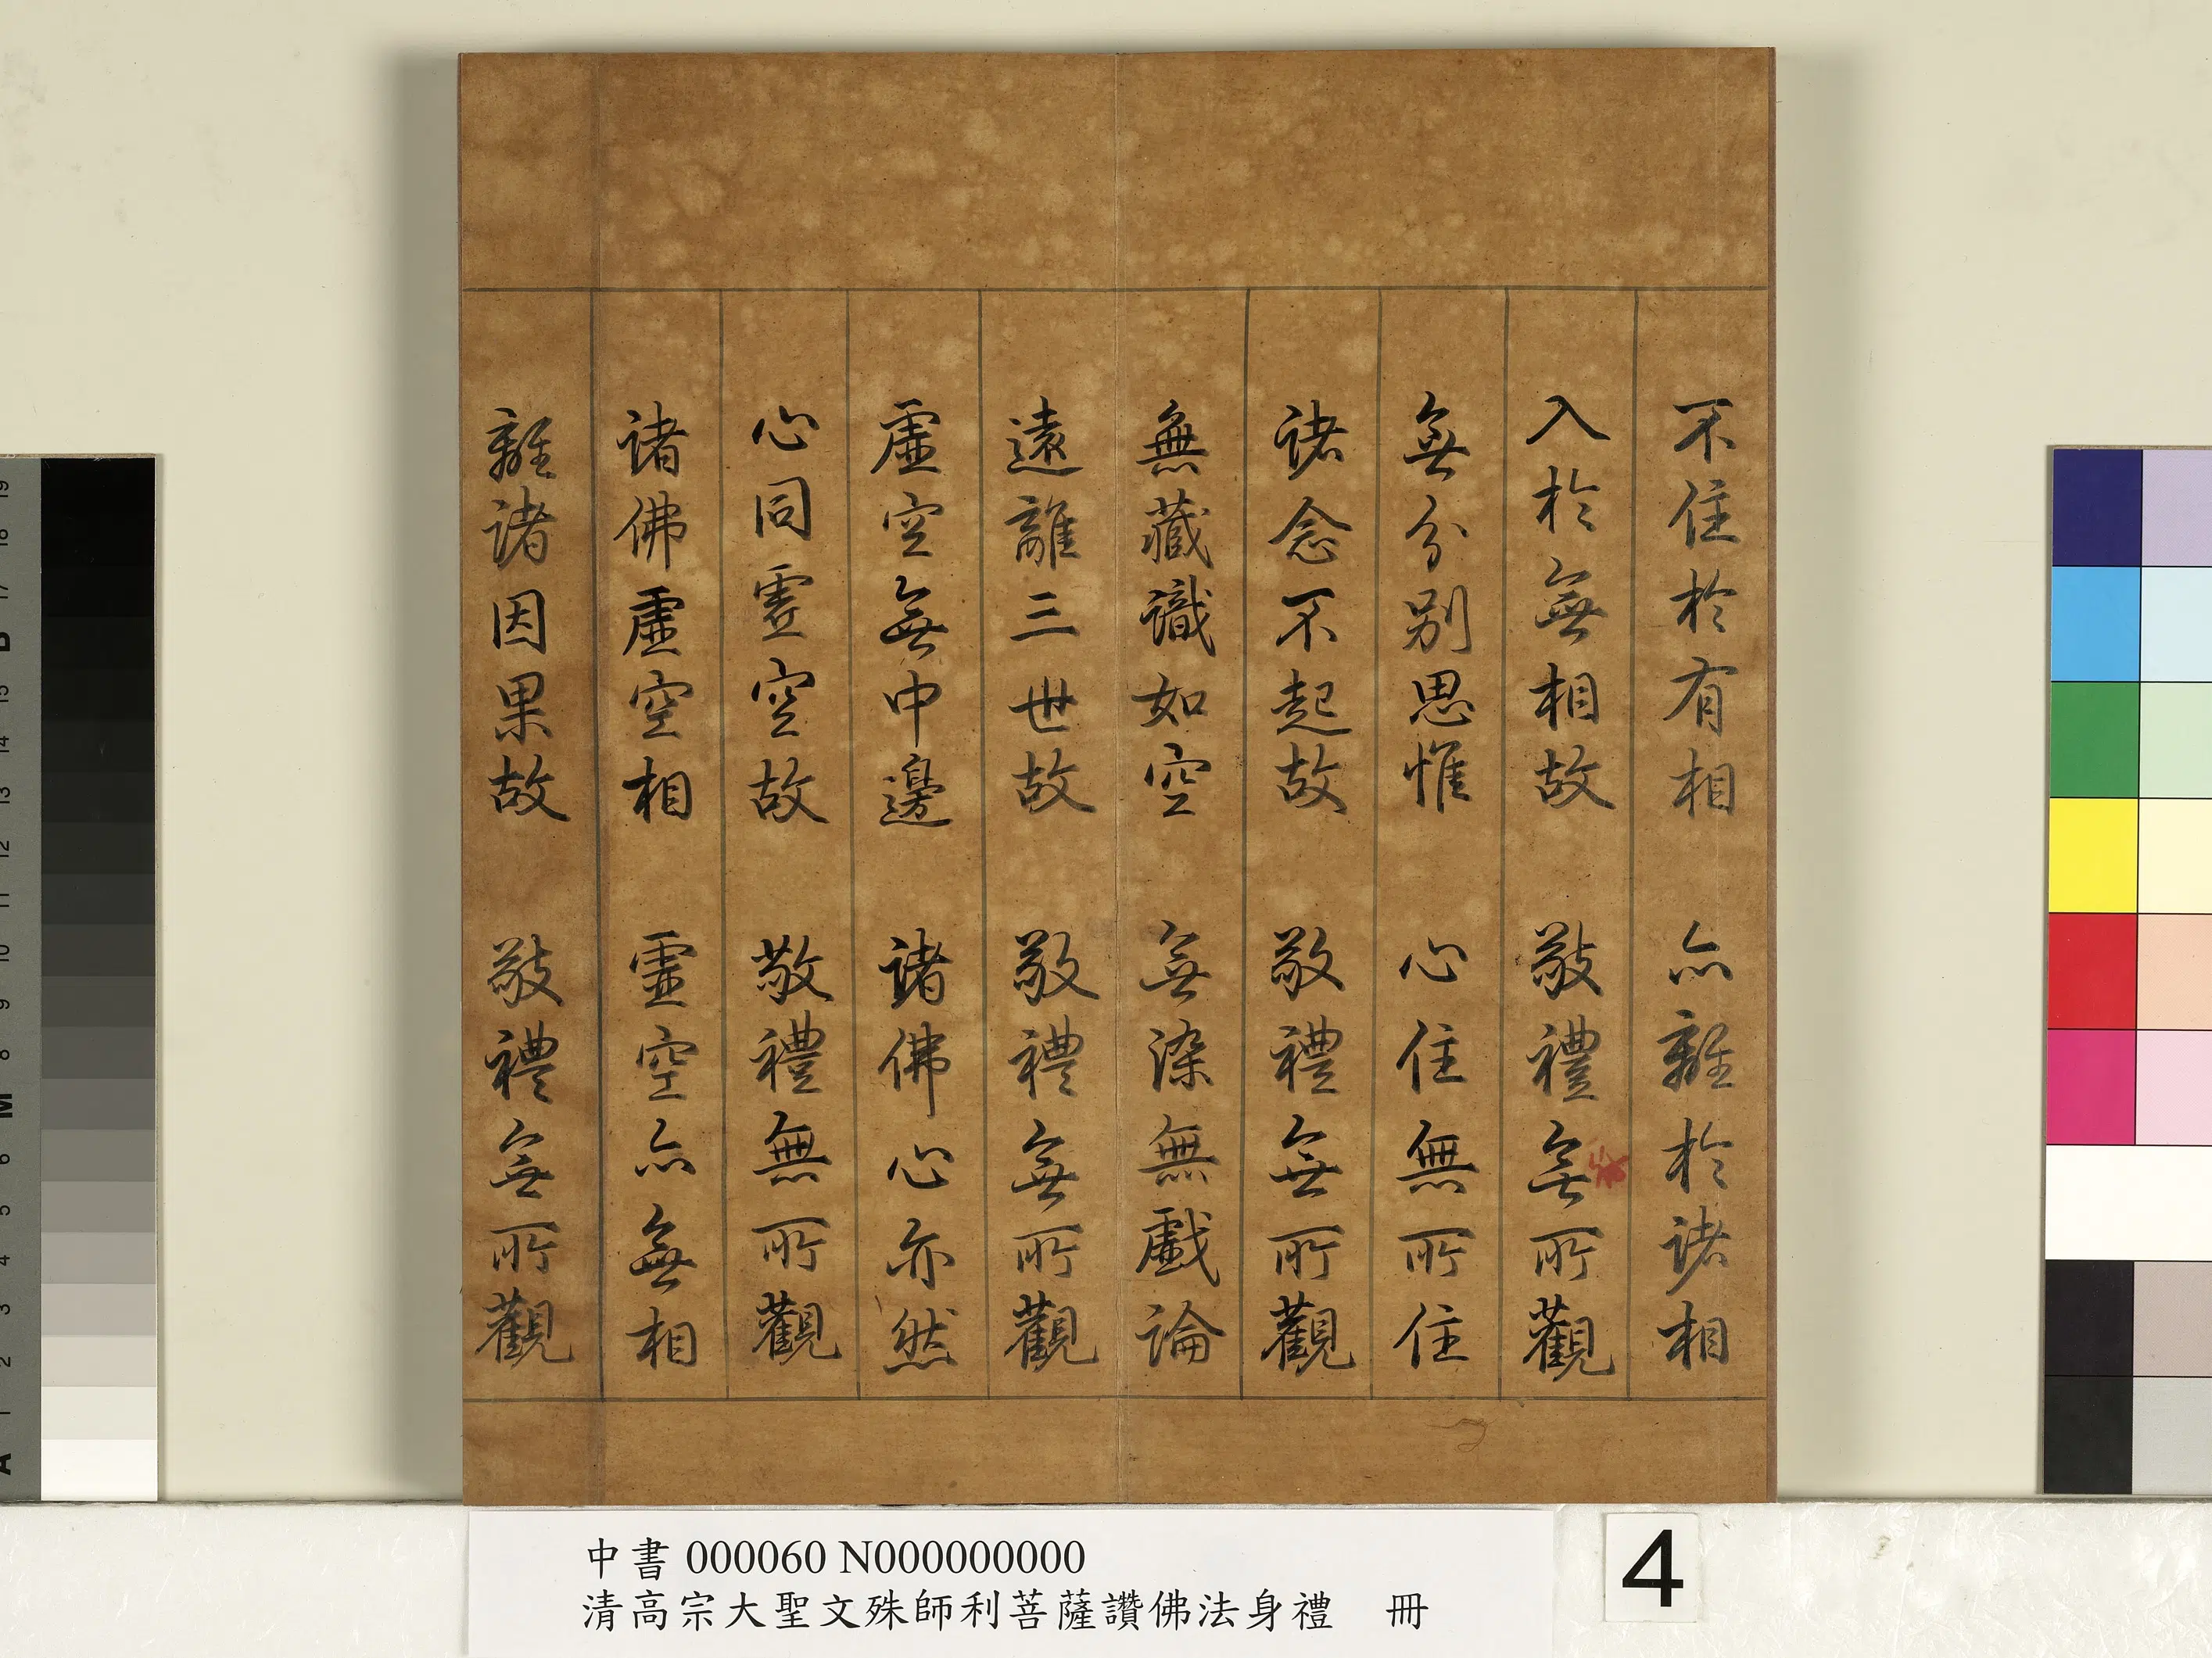 不住於有相 亦離於諸相
入於無相故 敬禮無所觀
無分別思惟 心住無所住
諸念不起故 敬禮無所觀
無藏識如空 無染無戲論
遠離三世故 敬禮無所觀
虛空無中邊 諸佛心亦然
心同虛空故 敬禮無所觀
諸佛虛空相 虛空亦無相
離諸因果故 敬禮無所觀
中書 000060 N000000000
清高宗大聖文殊師利菩薩讚佛法身禮 冊
4
19
18
17
B
15
14
13
12
11
10
9
8
M
6
5
4
3
2
1
A